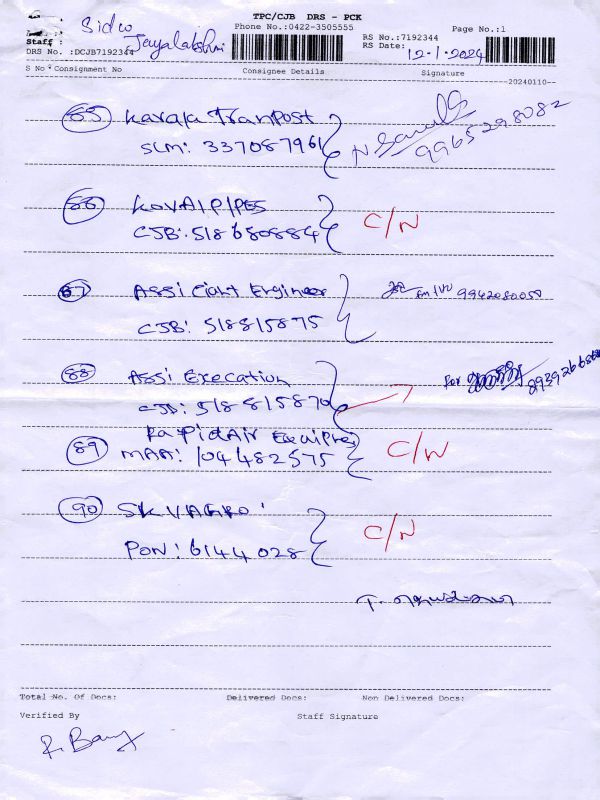 TPC/CJB DRS - PCK
Sidco
Phone No.:0422-3505555
Page No.:1
Staff : Jayalakshmi
RS No.:7192344
DRS No. :DCJB7192344
RS Date: 12-1-2024
S No Consignment No Consignee Details Signature
20240110
85 Karaja Tranpost
SLM: 337087961
9965298082
86 KOVAI PIPES
CJB: 518680884 C/N
87 Assi Ciant Engineer
9942080050
CJB: 518815875
88 Assi Execation
For
8939266868
CJB: 518815870
Rapid Air
89 MAA: 104482575 C/N
90 SKV AGRO
PON: 6144028 C/N
Total No. Of Docs: Delivered Docs: Non Delivered Docs:
Verified By Staff Signature